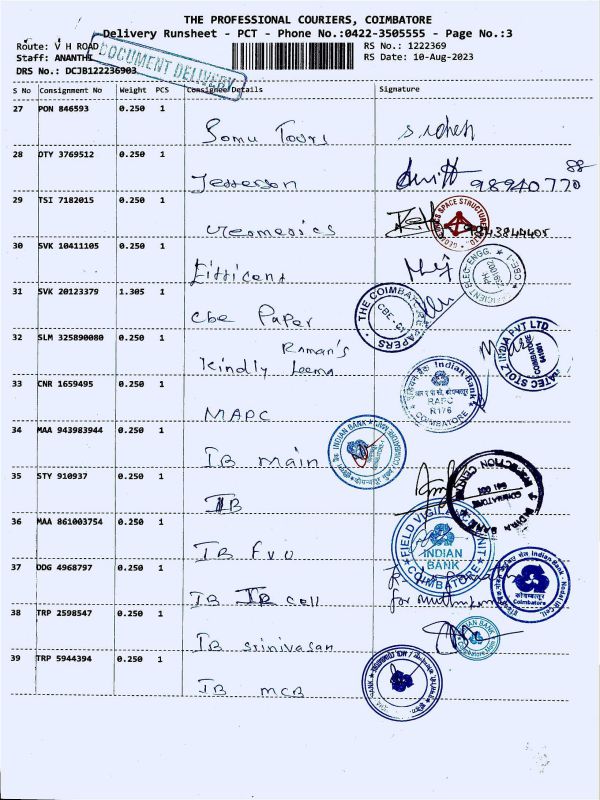 THE PROFESSIONAL COURIERS, COIMBATORE
Delivery Runsheet - PCT - Phone No.:0422-3505555 - Page No.:3
Route: V H ROAD
RS No.: 1222369
Staff: ANANTHI
RS Date: 10-Aug-2023
DRS No.: DCJB122236903
DOCUMENT DELIVERY
S No Consignment No Weight PCS Consignee Details Signature
27 PON 846593 0.250 1
Somu Tours
28 DTY 3769512 0.250 1
Jefferson 98940770 88
29 TSI 7182015 0.250 1
Geomedics 9843844405
SPACE STRUCTURES
30 SVK 10411105 0.250 1
Efficient
31 SVK 20123379 1.305 1
Cbe Paper
THE COIMBATORE PAPERS
CBE-01
32 SLM 325890080 0.250 1
Raman's
Kindly Leema
STOLZ INDIA PVT LTD
COIMBATORE
641001
33 CNR 1659495 0.250 1
MAPC
Indian Bank
RAPC
R176
COIMBATORE
34 MAA 943983944 0.250 1
IB main
INDIAN BANK
35 STY 910937 0.250 1
IB
INSPECTION CENTRE
COIMBATORE
641 001
INDIAN BANK
36 MAA 861003754 0.250 1
IB F.V.U
FIELD VIGILANCE UNIT
INDIAN BANK
COIMBATORE
37 DDG 4968797 0.250 1
IB IR cell
Indian Bank
कोयम्बत्तूर
Coimbatore
38 TRP 2598547 0.250 1
IB srinivasan
INDIAN BANK
39 TRP 5944394 0.250 1
IB MCB